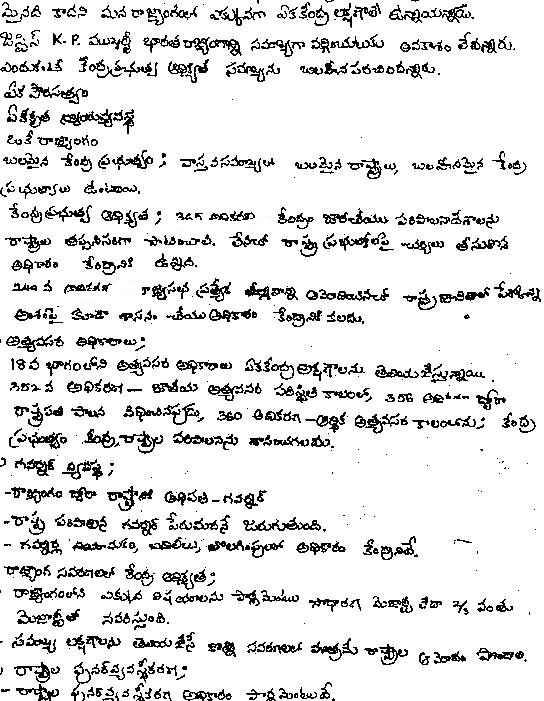 మైనది కాదని మన రాజ్యాంగంలో ఎక్కువగా ఏకకేంద్ర లక్షణాలే ఉన్నాయన్నాడు.
జస్టిస్ K.P. ముఖర్జీ భారత రాజ్యాంగాన్ని సమాఖ్యగా వర్ణించుటకు అవకాశం లేదన్నారు.
ఎందుకంటే కేంద్రప్రభుత్వ ఆధిక్యత సమాఖ్యను బలహీన పరచిందన్నారు.
ఏక పౌరసత్వం
ఏకీకృత న్యాయవ్యవస్థ
ఒకే రాజ్యాంగం
బలమైన కేంద్ర ప్రభుత్వం; వాస్తవ సమాఖ్యలో బలమైన రాష్ట్రాలు, బలహీనమైన కేంద్ర
ప్రభుత్వాలు ఉంటాయి.
కేంద్రప్రభుత్వ ఆధిక్యత; 365 అధికరణ కేంద్రం జారీచేయు పరిపాలనాదేశాలను
రాష్ట్రాలు తప్పనిసరిగా పాటించాలి. లేనిచో రాష్ట్ర ప్రభుత్వాలపై చర్యలు తీసుకొనే
అధికారం కేంద్రానికి ఉన్నది.
249 వ అధికరణ రాజ్యసభ ప్రత్యేక తీర్మానాన్ని ఆమోదించినచో రాష్ట్ర జాబితాలో పేర్కొన్న
అంశంపై కూడా శాసనం చేయు అధికారం కేంద్రానికి కలదు.
అత్యవసర అధికారాలు;
18వ భాగంలోని అత్యవసర అధికారాలు ఏకకేంద్ర లక్షణాలను తెలియచేస్తున్నాయి.
352వ అధికరణ – జాతీయ అత్యవసర పరిస్థితి కాలంలో, 356 అధికరణ ద్వారా
రాష్ట్రపతి పాలన విధించినప్పుడు, 360 అధికరణ – ఆర్థిక అత్యవసర కాలంలోను; కేంద్ర
ప్రభుత్వం కేంద్ర, రాష్ట్రాల పరిపాలనను శాసించగలదు.
గవర్నర్ వ్యవస్థ;
- రాజ్యాంగం ద్వారా రాష్ట్రానికి అధిపతి - గవర్నర్
- రాష్ట్ర పరిపాలన గవర్నర్ పేరుమీదనే జరుగుతుంది.
- గవర్నర్ల నియామకం, బదిలీలు, తొలగింపులలో అధికారం కేంద్రానిదే.
రాజ్యాంగ సవరణలలో కేంద్ర ఆధిక్యత;
- రాజ్యాంగంలోని ఎక్కువ విషయాలను పార్లమెంటు సాధారణ మెజార్టీ లేదా 2/3 వంతు
మెజార్టీతో సవరిస్తుంది.
- సమాఖ్య లక్షణాలను తెలియజేసే కొన్ని సవరణలలో మాత్రమే రాష్ట్రాల ఆమోదం పొందాలి.
రాష్ట్రాల పునర్వ్యవస్థీకరణ;
- రాష్ట్రాల పునర్వ్యవస్థీకరణ అధికారం పార్లమెంటుదే.